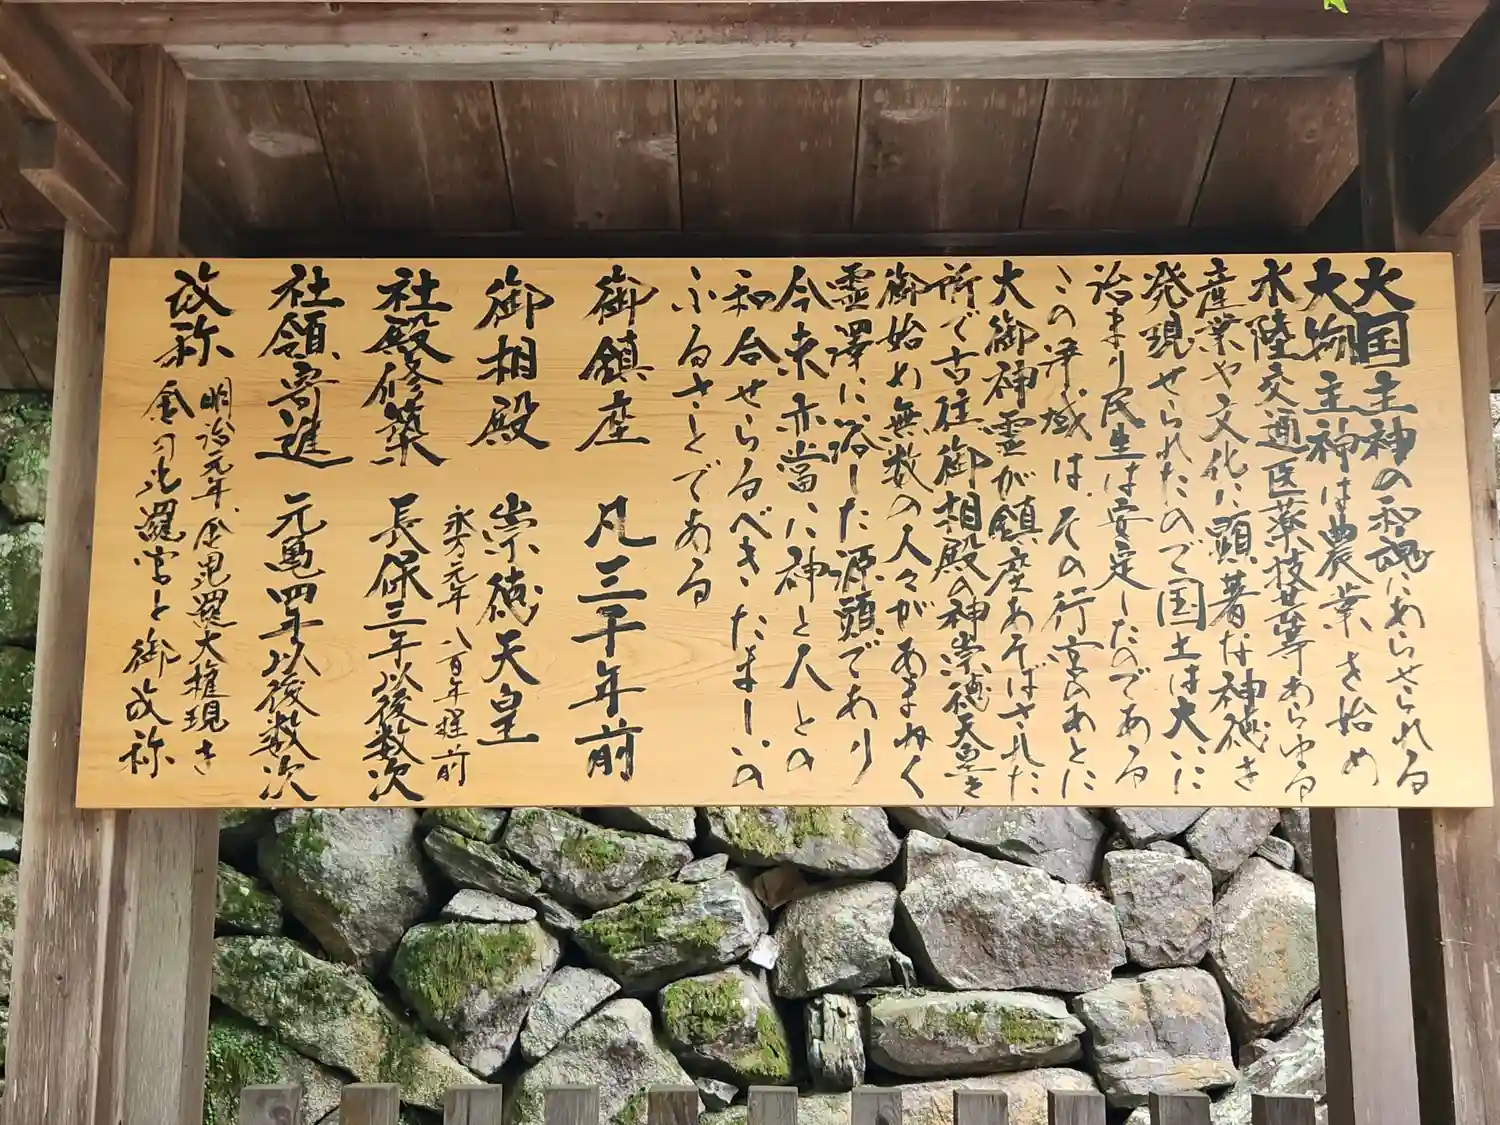 大国主神の和魂にあらせられる
大物主神は農業を始め
水陸交通医薬技芸等あらゆる
産業や文化に顕著な神徳を
発現せられたので国土は大いに
治まり民生は安定したのである
この浄域は、その行宮のあとに
大御神霊が鎮座あそばされた
所で古往御相殿の神崇徳天皇を
御始め無数の人々があまねく
霊澤に浴した源頭であり
今来亦當に神と人との
和合せらるべきたましいの
ふるさとである
御鎮座 凡三千年前
御相殿 崇徳天皇
永万元年 八百年程前
社殿修築 長保三年以後数次
社領寄進 元亀四年以後数次
改称 明治元年、金毘羅大権現を
金刀比羅宮と御改称